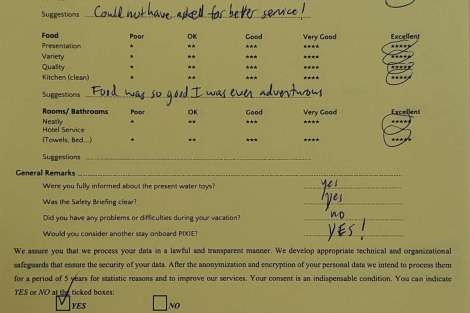 Suggestions Could not have asked for better service!
Food Poor OK Good Very Good Excellent
Presentation * ** *** **** *****
Variety * ** *** **** *****
Quality * ** *** **** *****
Kitchen (clean) * ** *** **** *****
Suggestions Food was so good I was even adventurous
Rooms/ Bathrooms Poor OK Good Very Good Excellent
Neatly * ** *** **** *****
Hotel Service
(Towels, Bed...) * ** *** **** *****
Suggestions
General Remarks
Were you fully informed about the present water toys? yes
Was the Safety Briefing clear? yes
Did you have any problems or difficulties during your vacation? no
Would you consider another stay onboard PIXIE? YES!
We assure you that we process your data in a lawful and transparent manner. We develop appropriate technical and organizational
safeguards that ensure the security of your data. After the anonymization and encryption of your personal data we intend to process them
for a period of 5 years for statistic reasons and to improve our services. Your consent is an indispensable condition. You can indicate
YES or NO at the ticked boxes:
YES NO